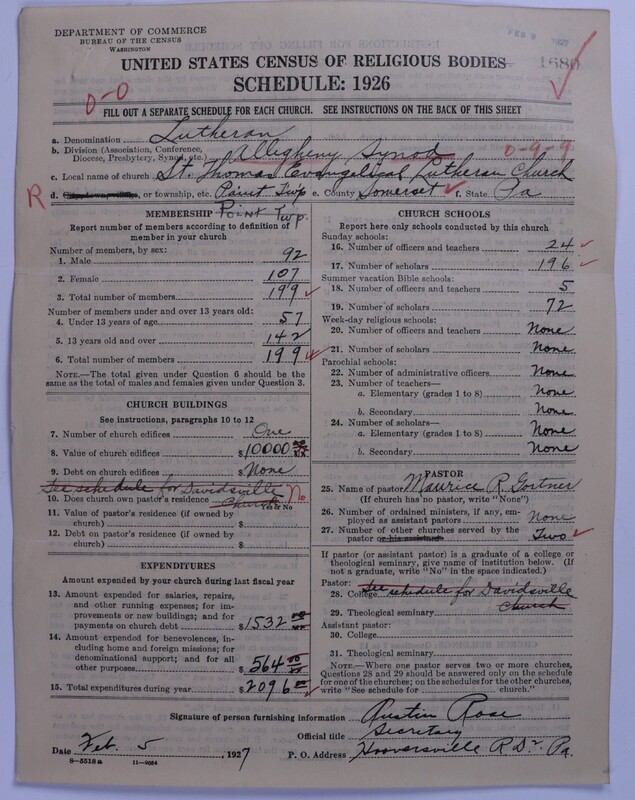 DEPARTMENT OF COMMERCE
BUREAU OF THE CENSUS
WASHINGTON
FEB 9 1927
UNITED STATES CENSUS OF RELIGIOUS BODIES
1680
SCHEDULE: 1926
0-0
FILL OUT A SEPARATE SCHEDULE FOR EACH CHURCH. SEE INSTRUCTIONS ON THE BACK OF THIS SHEET
a. Denomination Lutheran
b. Division (Association, Conference, Diocese, Presbytery, Synod, etc.) Allegheny Synod 0-9-9
c. Local name of church St. Thomas Evangelical Lutheran Church
R d. City, town, village, or township, etc. Paint Twp e. County Somerset f. State Pa
Point Twp.
MEMBERSHIP
Report number of members according to definition of
member in your church
Number of members, by sex:
1. Male 92
2. Female 107
3. Total number of members 199
Number of members under and over 13 years old:
4. Under 13 years of age 57
5. 13 years old and over 142
6. Total number of members 199
NOTE.—The total given under Question 6 should be
same as the total of males and females given under Question 3.
CHURCH BUILDINGS
See instructions, paragraphs 10 to 12
7. Number of church edifices One
8. Value of church edifices $10000 00
9. Debt on church edifices $None
See schedule for Davidsville Church No
10. Does church own pastor's residence Yes or No
11. Value of pastor's residence (if owned by
church) $
12. Debt on pastor's residence (if owned by
church) $
EXPENDITURES
Amount expended by your church during last fiscal year
13. Amount expended for salaries, repairs,
and other running expenses; for im-
provements or new buildings; and for
payments on church debt $1532
14. Amount expended for benevolences, in-
cluding home and foreign missions; for
denominational support; and for all
other purposes $564
15. Total expenditures during year $2096
CHURCH SCHOOLS
Report here only schools conducted by this church
Sunday schools:
16. Number of officers and teachers 24
17. Number of scholars 196
Summer vacation Bible schools:
18. Number of officers and teachers 5
19. Number of scholars 72
Week-day religious schools:
20. Number of officers and teachers None
21. Number of scholars None
Parochial schools:
22. Number of administrative officers None
23. Number of teachers—
a. Elementary (grades 1 to 8) None
b. Secondary None
24. Number of scholars—
a. Elementary (grades 1 to 8) None
b. Secondary None
PASTOR
25. Name of pastor Maurice R. Gortner
(If church has no pastor, write "None")
26. Number of ordained ministers, if any, em-
ployed as assistant pastors None
27. Number of other churches served by the
pastor or his assistant Two
If pastor (or assistant pastor) is a graduate of a college or
theological seminary, give name of institution below. (If
not a graduate, write "No" in the space indicated.)
Pastor: See schedule for Davidsville Church
28. College
29. Theological seminary
Assistant pastor:
30. College
31. Theological seminary
NOTE.—Where one pastor serves two or more churches,
Questions 28 and 29 should be answered only on the schedule
for one of the churches; on the schedules for the other churches,
write "See schedule for church."
Signature of person furnishing information Austin Rose
Official title Secretary
Date Feb. 5, 1927 P. O. Address Hooversville R.D. Pa.
8—5518a 11—9054